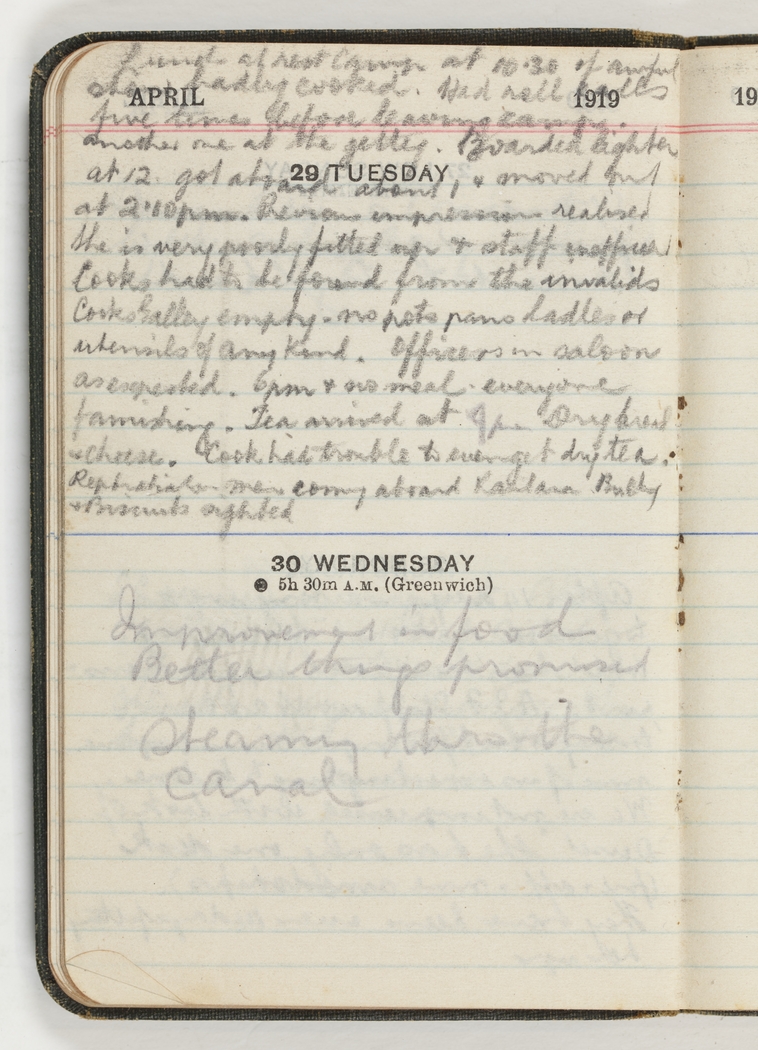 Lunch at rest Camp at 10.30 of awful
stew badly cooked. Had roll calls
APRIL 1919 19
five times before leaving camp.
another one at the gettey. Boarded lighter
at 12. got aboard about 1, & moved out
29 TUESDAY
at 2.10pm. Previous impression realised
She is very poorly fitted up & staff
Cooks had to be found from the invalids
Cooks Galley empty - no pots pans ladles or
utensils of any kind. Officers in saloon
as expected. 6pm & no meal - everyone
famishing. Tea arrived at 9pm Dry bread
& cheese. Cook had trouble to even get dry tea.
men coming aboard Kantara Bully
& Biscuits sighted
30 WEDNESDAY
5h 30m A.M. (Greenwich)
Improvement in food
Better things promised
Steaming thro the
Canal